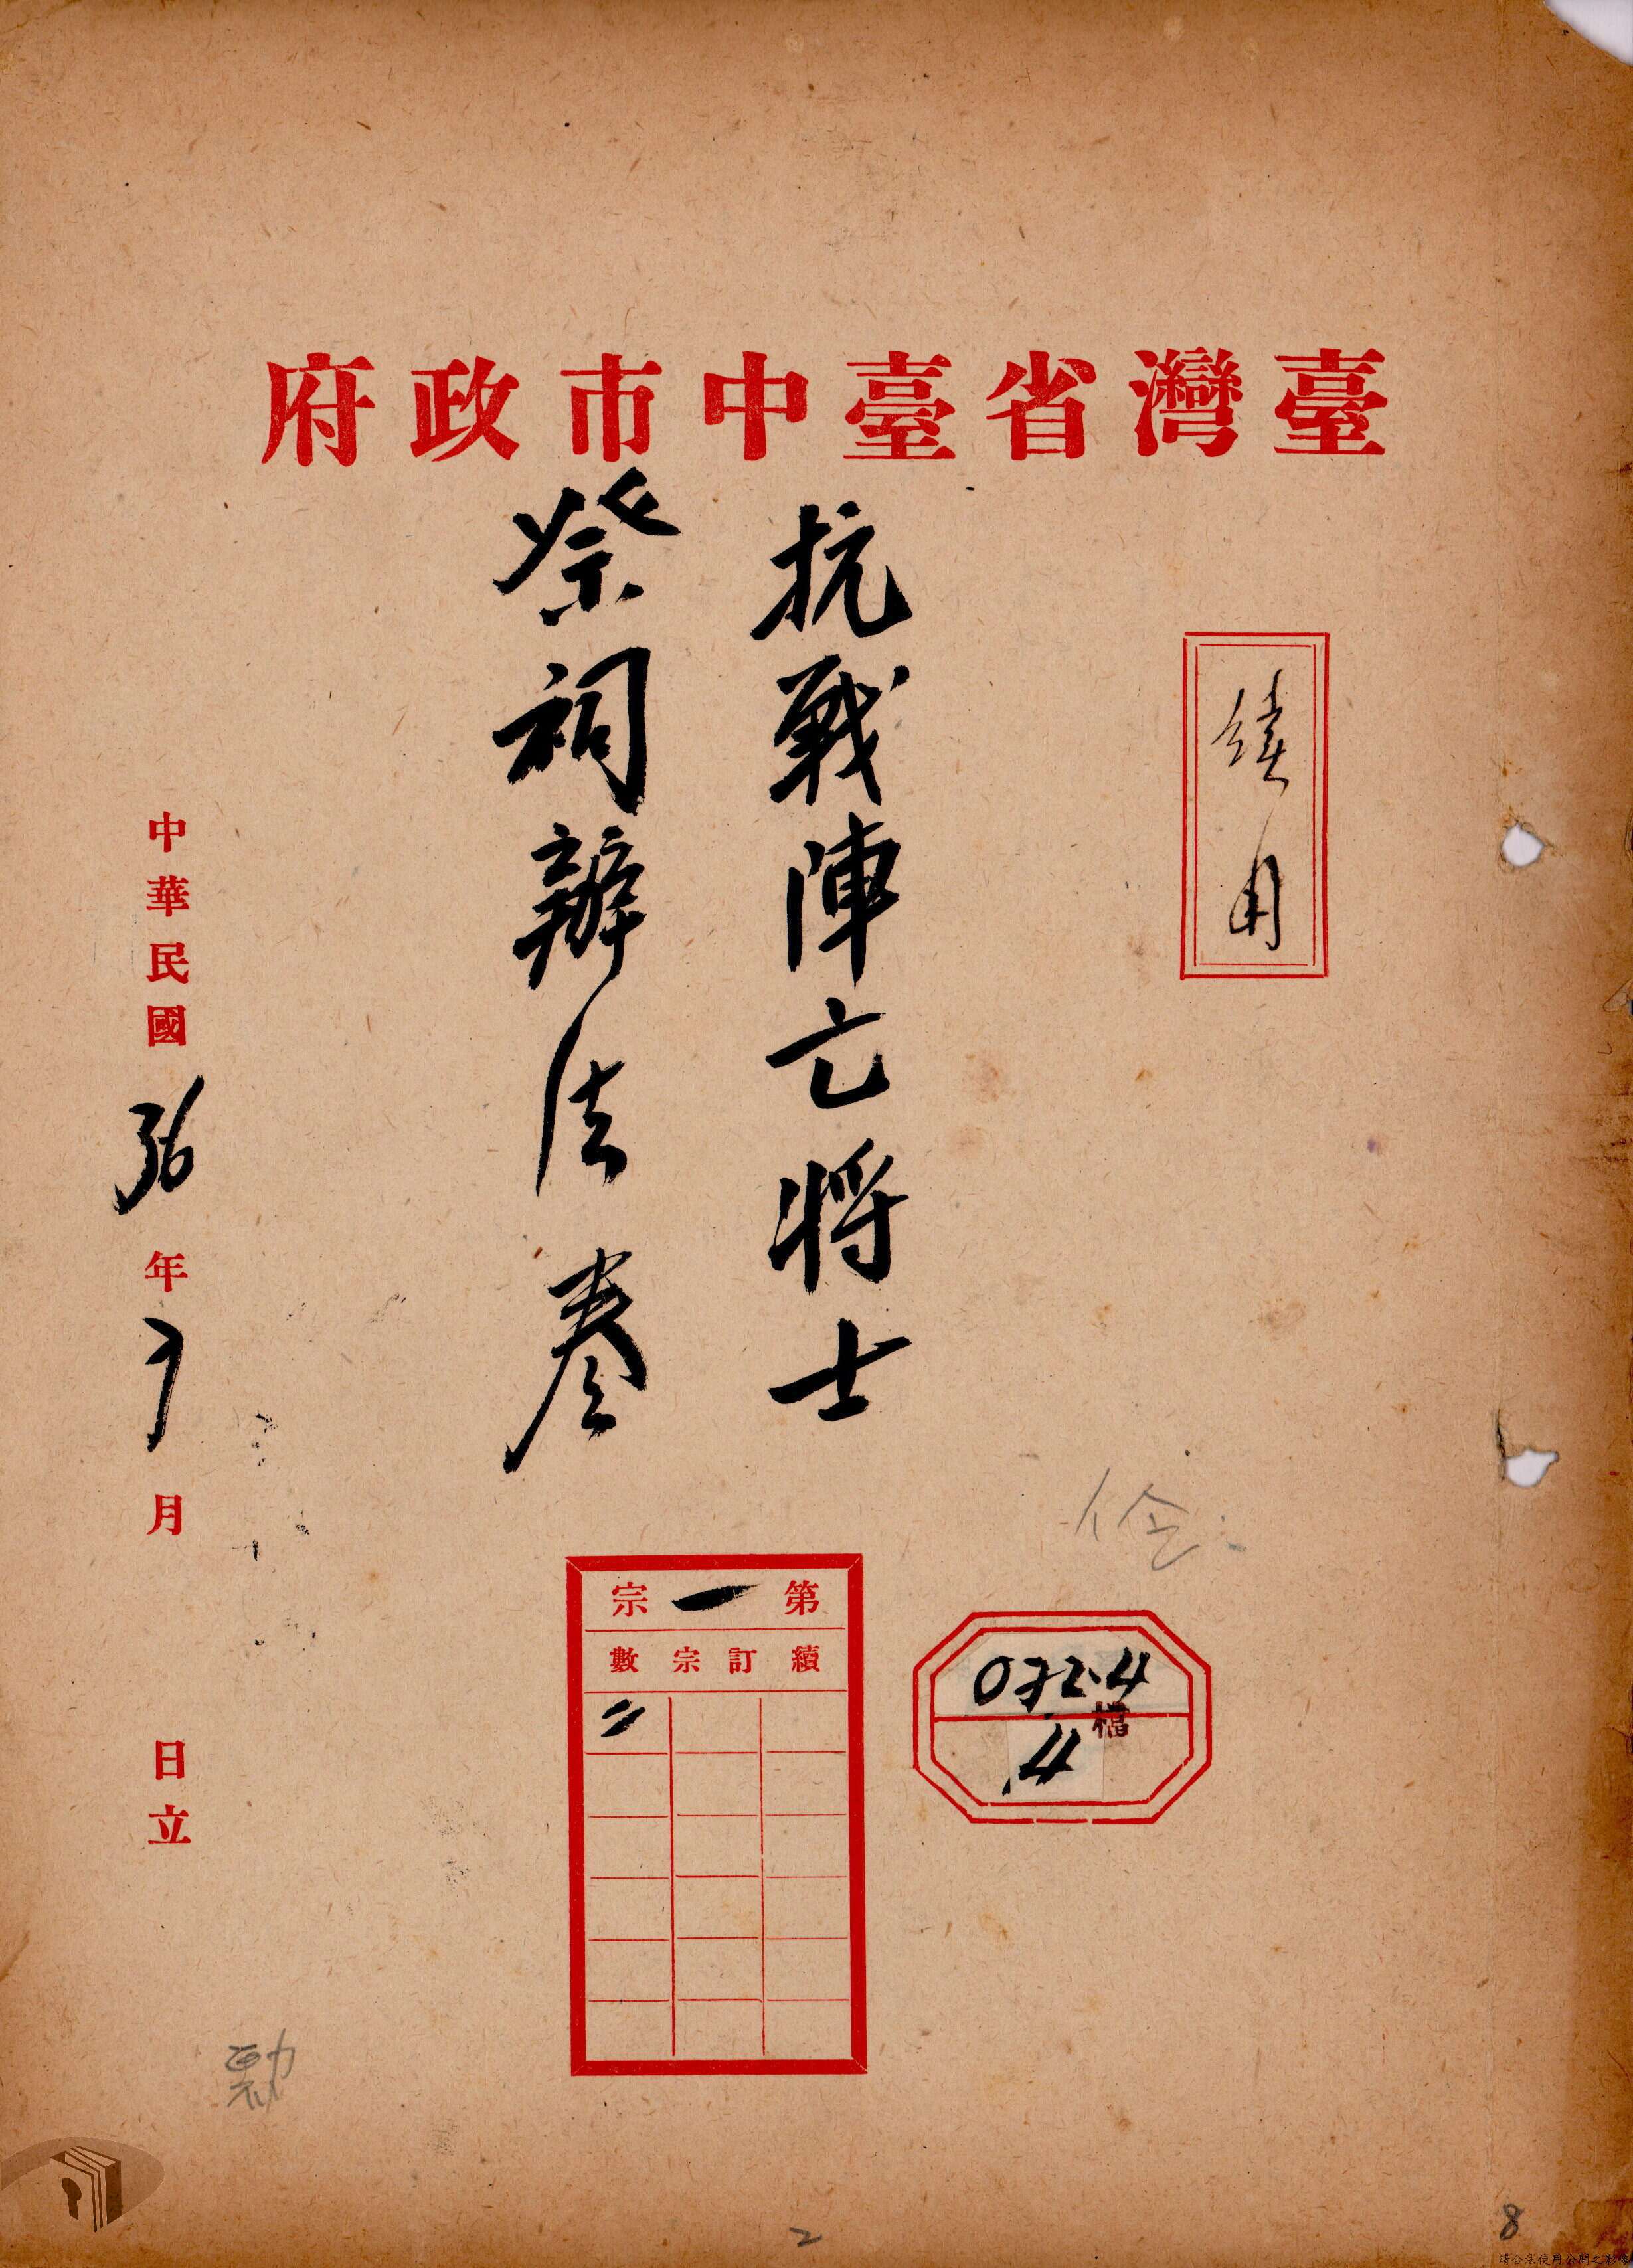 臺灣省臺中市政府
續用
抗戰陣亡將士
祭祠辦法卷
中華民國36年7月 日立
第一宗
續訂宗數
二
072.4
檔
4
2
8
請合法使用公開之影像